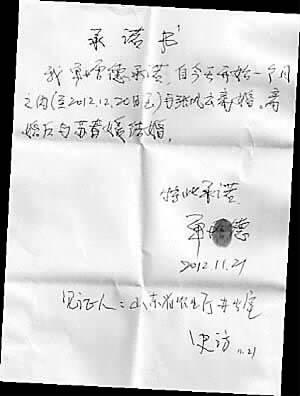 承诺书
我单增德承诺自今天开始一个月
之内(至2012.12.20日止)与张凤云离婚。离
婚后与苏春媛结婚。
特此承诺
单增德
2012.11.21
见证人:山东省农业厅
11.21